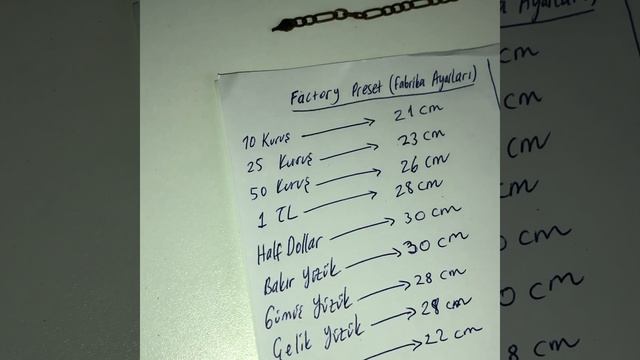 Factory Preset (Fabrika Ayarları)
10 Kuruş → 21 cm
25 Kuruş → 23 cm
50 Kuruş → 26 cm
1 TL → 28 cm
Half Dollar → 30 cm
Bakır Yüzük → 30 cm
Gümüş Yüzük → 28 cm
Çelik Yüzük → 28 cm
→ 22 cm